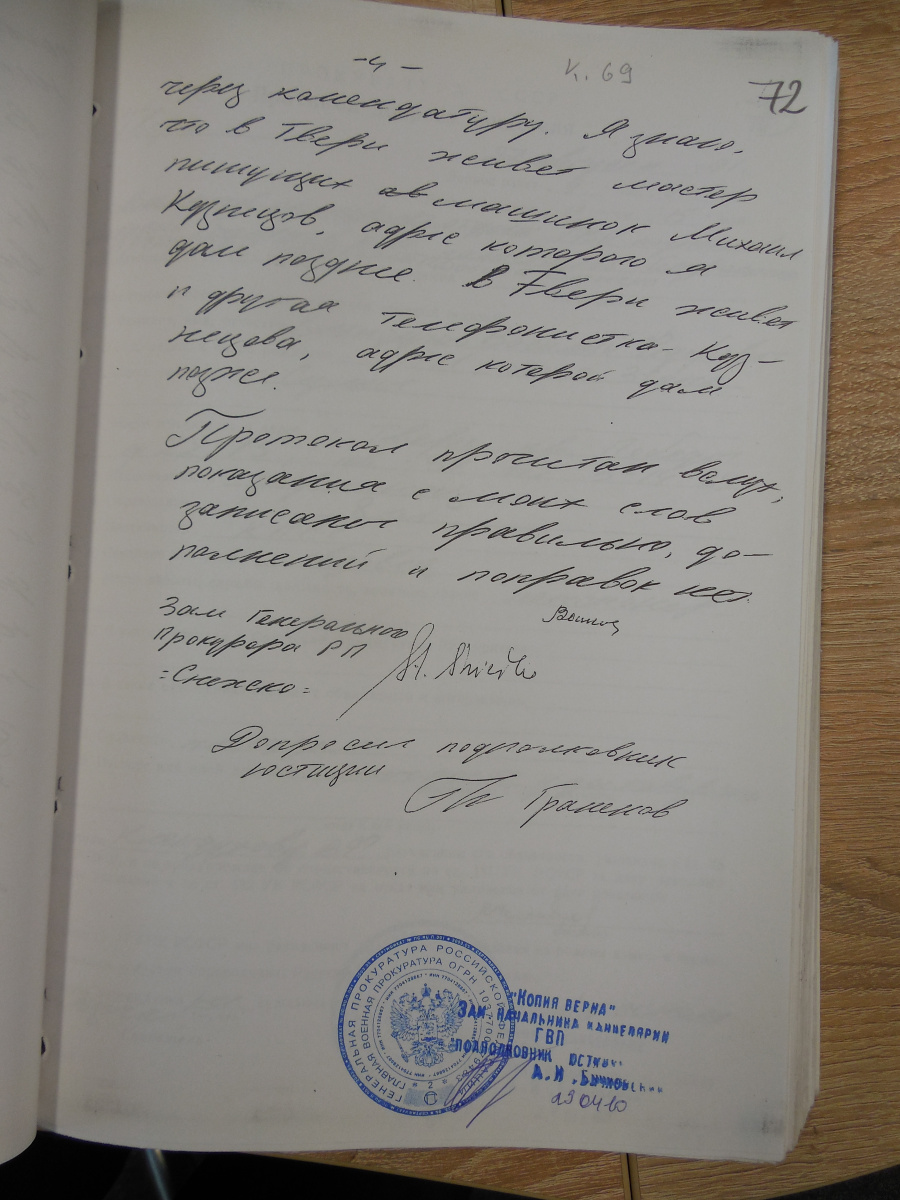 -4-
к. 69
72
через комендатуру. Я знаю,
что в Твери живет мастер
пишущих машинок Михаил
Кузнецов, адрес которого я
дам позднее. В Твери живет
и другая телефонистка - Куз-
нецова, адрес которой дам
позже.
Протокол прочитан вслух,
показания с моих слов
записаны правильно, до-
полнений и поправок нет.
Зам Генерального
Прокурора РП
=Снежко=
Допросил подполковник
юстиции
Граненов
ГЕНЕРАЛЬНАЯ ПРОКУРАТУРА РОССИЙСКОЙ
ГЛАВНАЯ ВОЕННАЯ ПРОКУРАТУРА ОГРН
2
"КОПИЯ ВЕРНА"
ЗАМ. НАЧАЛЬНИКА КАНЦЕЛЯРИИ
ГВП
ПОДПОЛКОВНИК ЮСТИЦИИ
А.И.
29 04 10